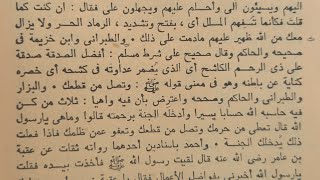 اليهم ويسيئون الى وأحلم عليهم ويجهلون على فقال : ان كنت كما
قلت فكأنما تسفهم المل أى ، بفتح وتشديد ، الرماد الحار ولا يزال
معك من الله ظهير عليهم مادمت على ذلك ، والطبرانى وابن خزيمة فى
صحيحه والحاكم وقال صحيح على شرط مسلم : أفضل الصدقة صدقة
على ذى الرحم الكاشح أى الذى يضمر عداوته فى كشحه أى خصره
كناية عن باطنه وهو فى معنى قوله ﷺ : وتصل من قطعك ، والبزار
والطبرانى والحاكم وصححه واعترض بأن فيه واهيا : ثلاث من كن
فيه حاسبه الله حسابا يسيرا وأدخله الجنة برحمته قالوا وماهى يارسول
الله قال تعطى من حرمك وتصل من قطعك وتعفو عمن ظلمك فاذا فعلت
ذلك يدخلك الجنة ، وأحمد باسنادين أحدهما رواته ثقات عن عقبة
بن عامر رضى الله عنه قال لقيت رسول الله ﷺ فأخذت بيده فقلت
يارسول الله أخبرنى بفواضل الأعمال فقال يا عقبة